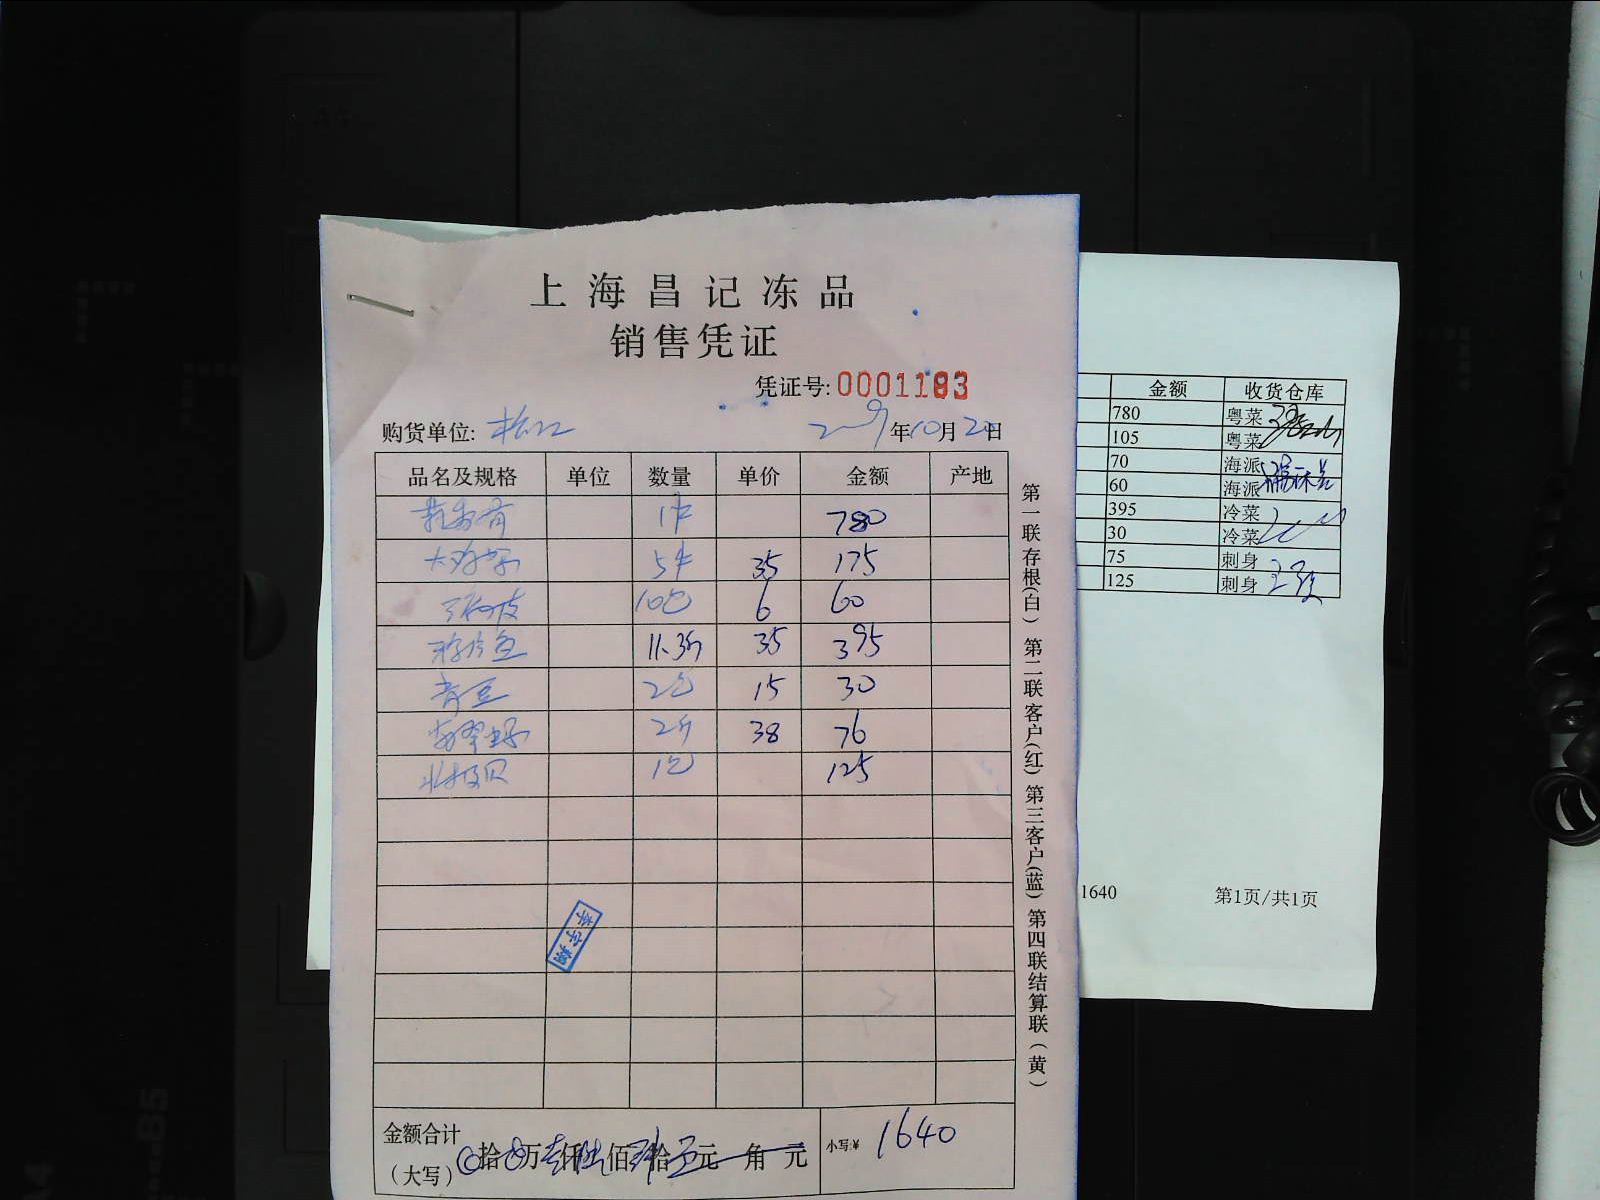 上海昌记冻品
销售凭证
凭证号:0001183
购货单位: 松江 2019年10月20日
品名及规格 单位 数量 单价 金额 产地
1件 780
5件 35 175
10包 6 60
11.3斤 35 395
青豆 2包 15 30
2斤 38 76
北极贝 1包 125
李宇翔
金额合计
(大写) 拾 万 仟 佰 拾 元 角 元 小写:¥ 1640
第一联存根(白) 第二联客户(红) 第三客户(蓝) 第四联结算联(黄)
金额 收货仓库
780 粤菜
105 粤菜
70 海派
60 海派
395 冷菜
30 冷菜
75 刺身
125 刺身
1640 第1页/共1页